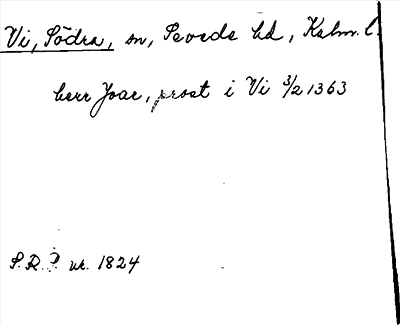 Vi, Södra, sn, Sevede hd, Kalm. l.
herr Joar, prost i Vi 3/2 1363
S.R.P. nr. 1824